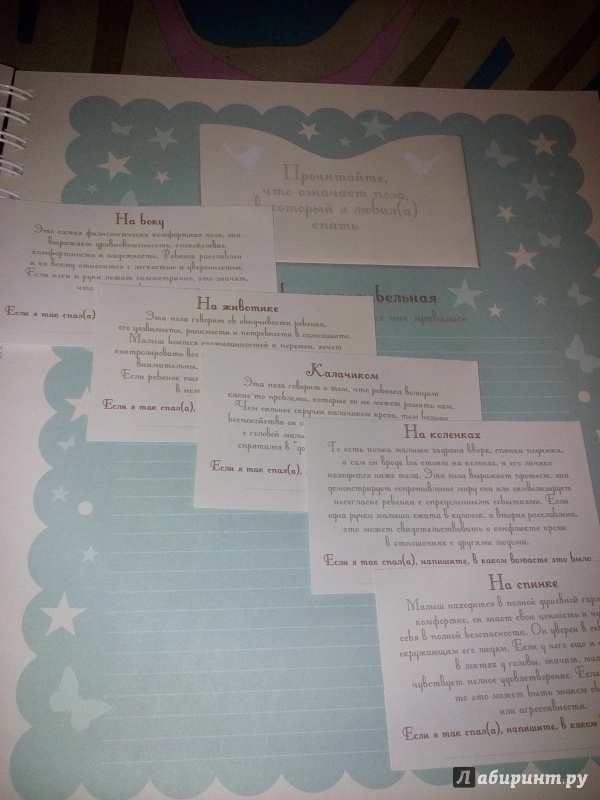 Прочитайте,
что означает поза,
в который я любил(а)
спать
На боку
Эта самая физиологически комфортная поза, она
выражает уравновешенность, спокойствие,
комфортность и надежность. Ребенок расслаблен
и ко всему относится с легкостью и уверенностью.
Если ноги и руки лежат симметрично, это значит,
что
Если я так спал(а)
бельная
мне нравилась
На животике
Эта поза говорит об обидчивости ребенка,
его уязвимости, ранимости и потребности в самозащите.
Малыш боится неожиданностей и перемен, хочет
контролировать все
внимательны,
Если ребенок еще
в нем
Если я так спал(а),
Калачиком
Эта поза говорит о том, что ребенка волнуют
какие-то проблемы, которые он не может решить сам.
Чем сильнее скручен калачиком кроха, тем больше
беспокойства он
с головой
спрятался в "до
Если я так спал(а),
На коленках
То есть попка малыша задрана вверх, спинка поднята,
и сам он вроде бы стоит на коленях, и его личико
находится ниже тела. Эта поза выражает протест, она
демонстрирует сопротивление миру сна или символизирует
несогласие ребенка с определенными событиями. Если
одна ручка малыша сжата в кулачок, а вторая расслаблена,
это может свидетельствовать о конфликте крохи
в отношениях с другими людьми.
Если я так спал(а), напишите, в каком возрасте это было
На спинке
Малыш находится в полной душевной гар
комфортно, он знает свою ценность и чу
себя в полной безопасности. Он уверен в себ
окружающим его людям. Если у него еще и
в локтях у головы, значит, мал
чувствует полное удовлетворение. Если
то это может быть знаком об
или агрессивности.
Если я так спал(а), напишите, в каком
Лабиринт.ру